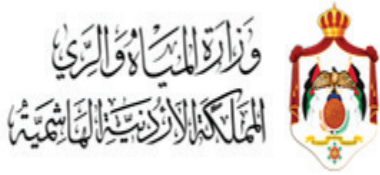 وَزَارَةُ المِيَاهُ وَالرَّيِّ
المَمْلَكَةُ الأُرْدُنِيَّةُ الهَاشِمِيَّةُ